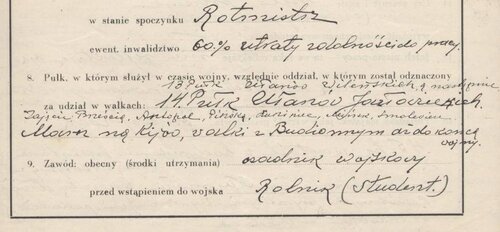 w stanie spoczynku Rotmistrz
ewent. inwalidztwo 60% utraty zdolności do pracy
8. Pułk, w którym służył w czasie wojny, względnie oddział, w którym został odznaczony
13 Pułk Ułanów Wileńskich, a następnie
za udział w walkach: 14. Pułk Ułanów Jazłowieckich,
Zajęcie Brześcia, Antopol, Pińska, Łuniniec, Mińsk, Smolewicz
Marsz na Kijów, walki z Budionnym aż do końca
wojny.
9. Zawód: obecny (środki utrzymania) osadnik wojskowy
przed wstąpieniem do wojska Rolnik (student.)